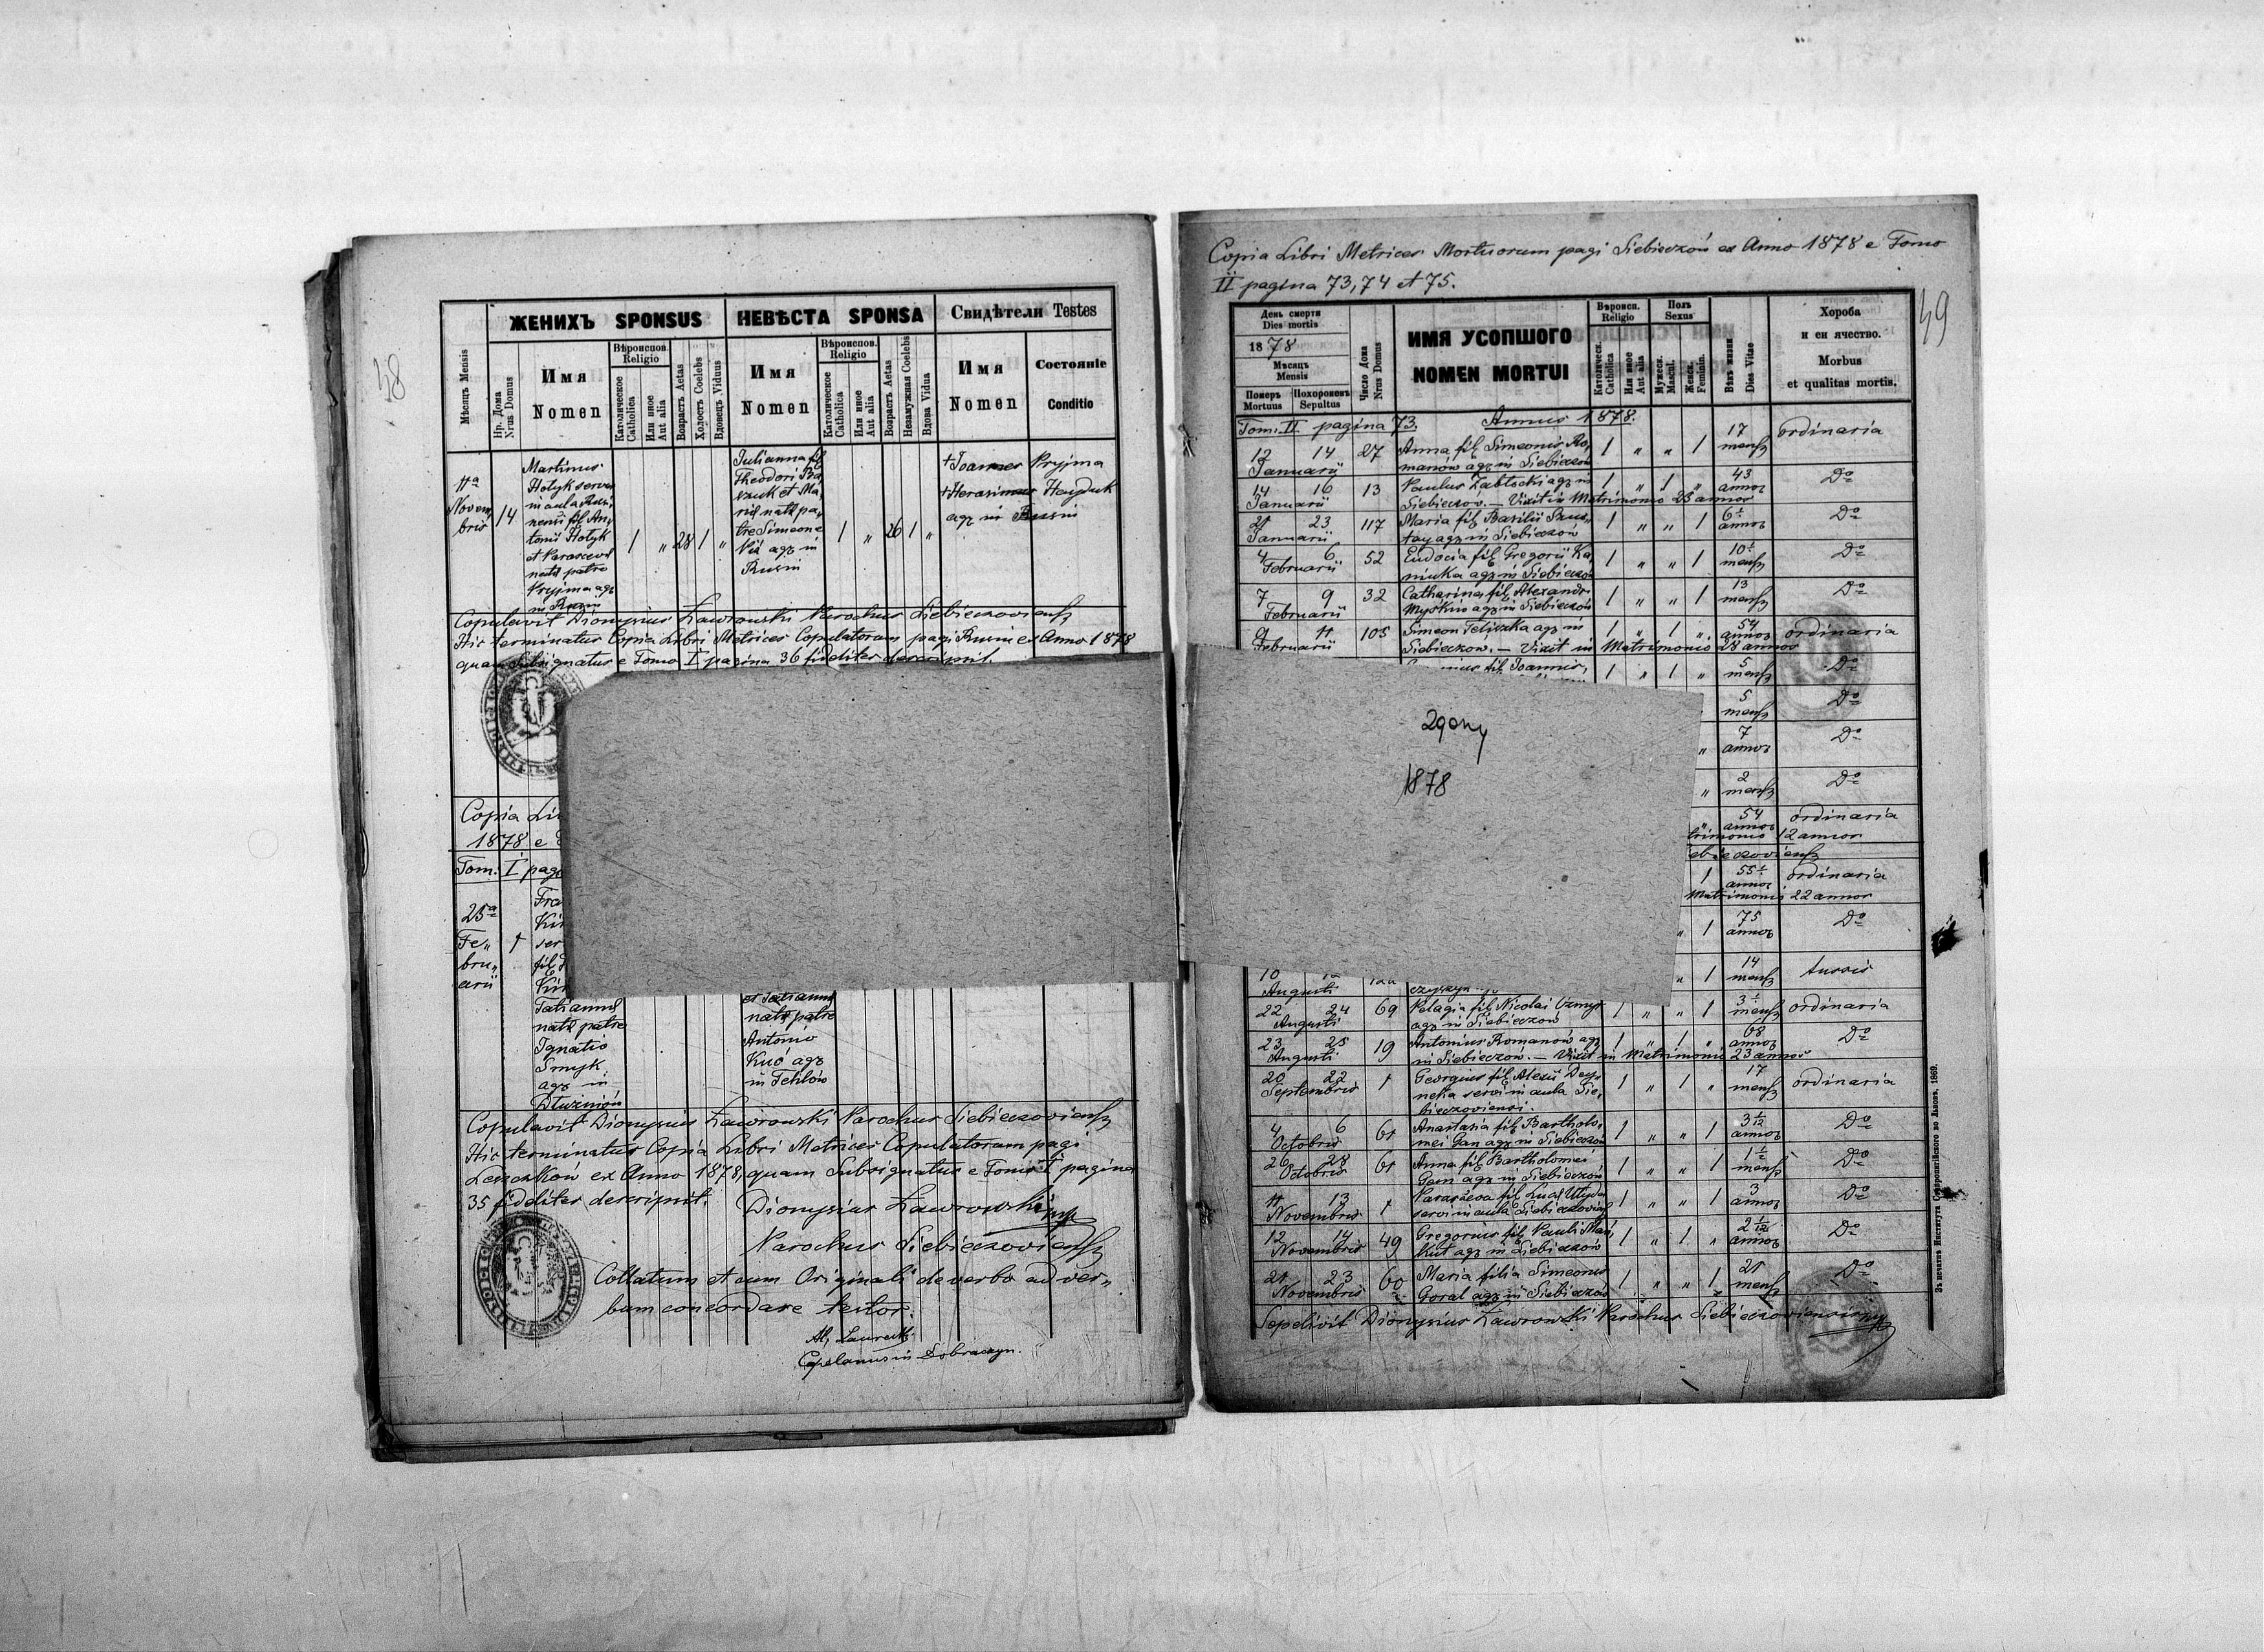 48
ЖЕНИХЪ SPONSUS
НЕВѢСТА SPONSA
Свидѣтели Testes
Мѣсяцъ Mensis
Нр. Дома
Nrus Domus
Имя
Nomen
Вѣроиспов.
Religio
Католическое
Catholica
Или иное
Aut alia
Возрастъ Aetas
Холостъ Coelebs
Вдовецъ Viduus
Имя
Nomen
Вѣроиспов.
Religio
Католическое
Catholica
Или иное
Aut alia
Возрастъ Aetas
Незамужная Coelebs
Вдова Vidua
Имя
Nomen
Состояніе
Conditio
11a
Novem
bris
14
Martinus
Hotyk servus
in aula
fil An,
tonii Hotyk
et Parascevæ
natæ patre
Pryjma agr
in Rusin
1 " 28 1 "
Julianna fil
Theodori
et Ma,
riæ natæ pa,
tre Simeone
agr in
Rusin
1 " 26 1 "
+ Joannes Pryjma
+ Herasimus Hayduk
agr in Rusin
Copulavit Dionysius Ławrowski Parochus Siebieczoviensis
Hic terminatur Copia Libri Metrices Copulatorum pagi Rusin ex Anno 1878
quam Subsignatus e Tomo I pagina 36 fideliter descripsit.
Copia Li
1878 e
Tom. I pag
25a
Fe,,
bru,,
arii
1
Fra
Kir
ser
fil
Kir
Tatiannæ
natæ patre
Ignatio
Smyk
agr in
Dłużniów
et Tatiannæ
natæ patre
Antonio
Kuć agr
in Tehlów
Copulavit Dionysius Ławrowski Parochus Siebieczoviensis
Hic terminatur Copia Libri Metrices Copulatorum pagi
Leszczków ex Anno 1878, quam Subsignatus e Tomo I pagina
35 fideliter descripsit. Dionysius Ławrowski mp
Parochus Siebieczoviensis
Collatum et cum Originali de verbo ad ver,,
bum concordare testor.
Capelanus in Dobraczyn.
Copia Libri Metrices Mortuorum pagi Siebieczów ex Anno 1878 e Tomo
II pagina 73, 74 et 75.
49
День смерти
Dies mortis
1878
Мѣсяцъ
Mensis
Померъ
Mortuus
Похороненъ
Sepultus
Число Дома
Nrus Domus
ИМЯ УСОПШОГО
NOMEN MORTUI
Вѣроисп.
Religio
Католическ.
Catholica
Или иное
Aut alia
Полъ
Sexus
Мужеск.
Mascul.
Женск.
Feminin.
Вѣкъ жизни
Dies Vitae
Хороба
и еи ячество.
Morbus
et qualitas mortis.
Tom. II pagina 73. Annus 1878.
12 14 Januarii 27 Anna fil Simeonis Ro,
manów agr in Siebieczów 1 " " 1 17 mens ordinaria
14 16 Januarii 13 Paulus Zabłocki agr in
Siebieczów. — Vixit in Matrimonio 23 annos 1 " 1 " 43 annor Do
21 23 Januarii 117 Maria fil Basilii Szus,
tay agr in Siebieczów 1 " " 1 6½ annor Do
4 6 Februarii 52 Eudocia fil Gregorii Ka,
niuka agr in Siebieczów 1 " " 1 10½ mens Do
7 9 Februarii 32 Catharina fil Alexandri
Myśkiw agr in Siebieczów 1 " " 1 13 mens Do
9 11 Februarii 105 Simeon Teliczka agr in
Siebieczow. — Vixit in Matrimonio 28 annos 1 " 1 " 54 annor ordinaria
fil Joannis, 1 " 1 " 5 mens Do
5 mens Do
" 7 annor Do
" 2 mens Do
" 54 annor ordinaria
trimonio 12 annos
ebieczoviensis
1 55½ annor ordinaria
Matrimonio 22 annos
" 1 75 annor Do
Zgony
1878
10 12 Augusti " 1 14 mens tussis
22 24 Augusti 69 Pelagia fil Nicolai
agr in Siebieczów 1 " " 1 3½ mens ordinaria
23 25 Augusti 19 Antonius Romanów agr
in Siebieczów. — Vixit in Matrimonio 23 annos 1 " 1 " 68 annor Do
20 22 Septembris 1 Georgius fil Alexii Dey,
neka servi in aula Sie,
bieczoviensi. 1 " 1 " 17 mens ordinaria
4 6 Octobris 61 Anastasia fil Bartholo,
mei Gan agr in Siebieczów 1 " " 1 3 1/12 annor Do
26 28 Octobris 61 Anna fil Bartholomei
Gan agr in Siebieczów 1 " " 1 1½ mens Do
11 13 Novembris 1 Parasceva fil Lucæ
servi in aula Siebieczoviens 1 " " 1 3 annor Do
12 14 Novembris 49 Gregorius fil Pauli
agr in Siebieczów 1 " 1 " 2 1/12 annor Do
21 23 Novembris 60 Maria filia Simeonis
Goral agr in Siebieczów 1 " " 1 21 mens Do
Sepelivit Dionysius Ławrowski Parochus Siebieczoviensis mp
Зъ печатнѣ Института Ставропигійского во Львовѣ, 1869.